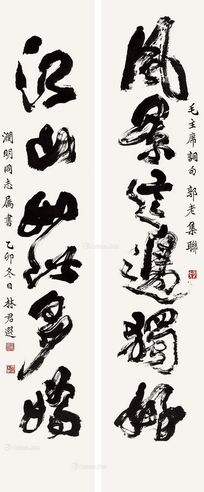 毛主席詞句 郭老集聯
風景這邊獨好
江山如此多嬌
潤明同志屬書 乙卯冬日 林君選